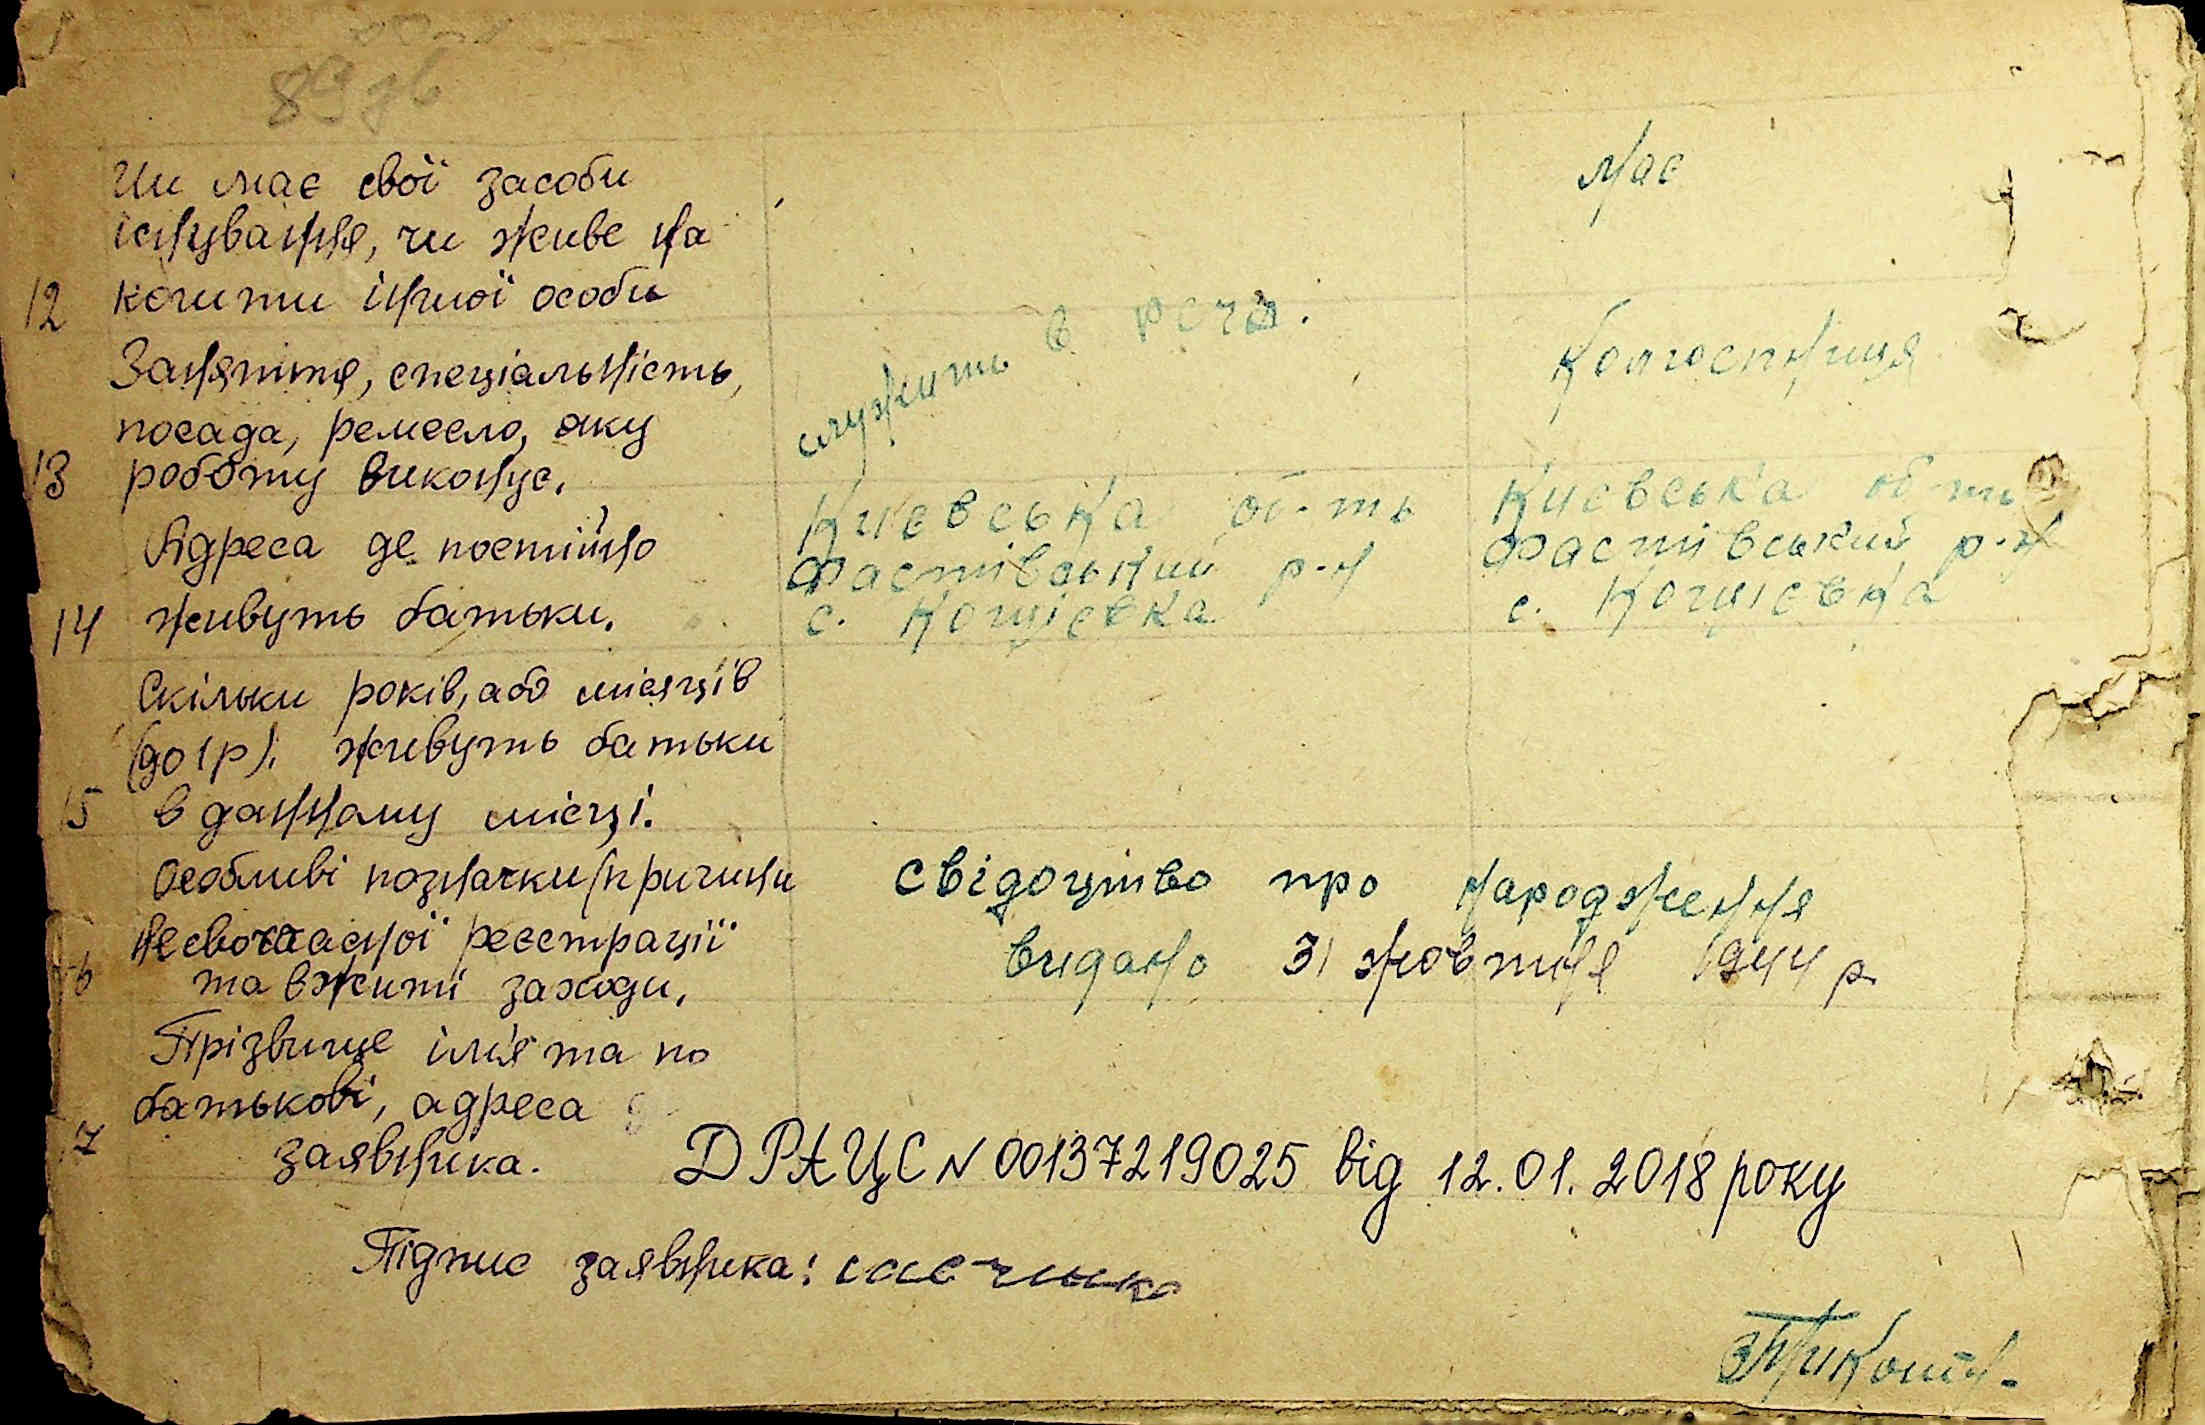 Чи має свої засоби
існування, чи живе на
12 кошти іншої особи
має
Заняття, спеціальність,
посада, ремесло, яку
13 роботу виконує.
служить в РСЧА.
Колгоспниця
Адреса де постійно
14 живуть батьки.
Києвська об-ть
Фастівський р-н
с. Кощієвка
Києвська об-ть
Фастівський р-н
с. Кощієвка
Скільки років, або місяців
(до 1 р). живуть батьки
15 в данному місці.
Особливі позначки (причини
несвоєчасної реєстрації
та вжиті заходи.
свідоцтво про народження
видано 31 жовтня 1944 р.
Прізвище ім'я та по
батькові, адреса
заявника.
ДРАЦС N 00137219025 від 12.01.2018 року
Підпис заявника: